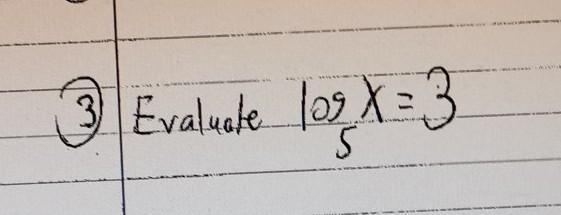 ③ Evaluate log₅ X = 3